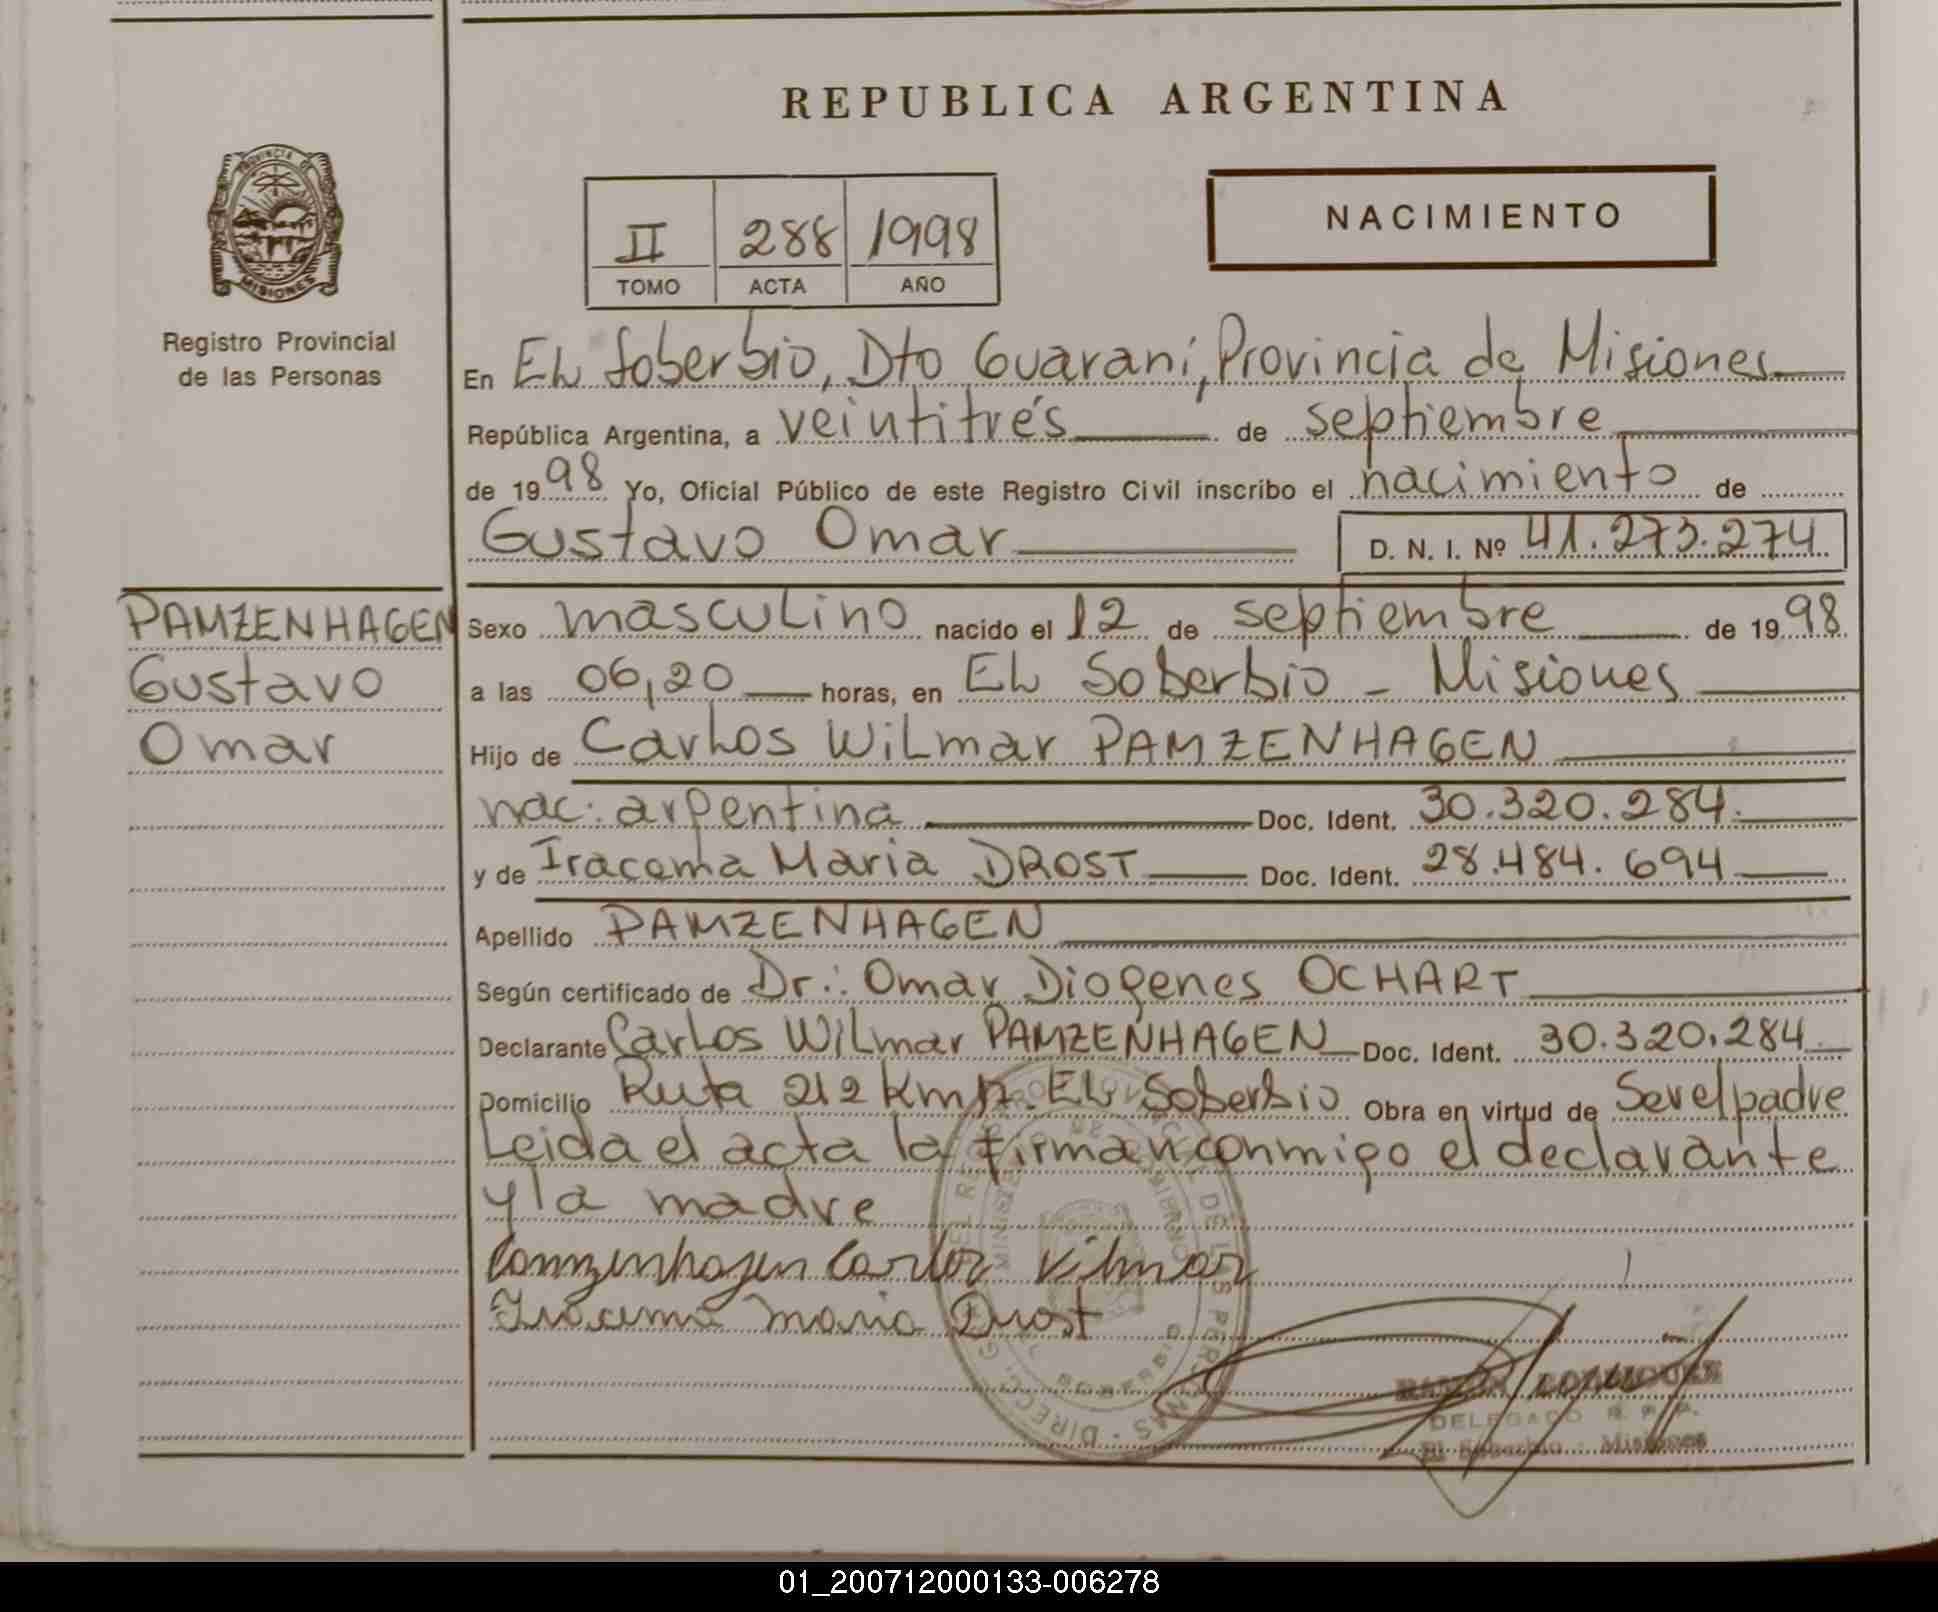 REPUBLICA ARGENTINA
PROVINCIA DE
MISIONES
Registro Provincial
de las Personas
II 288 1998
TOMO ACTA AÑO
NACIMIENTO
En EL Soberbio, Dto Guaraní, Provincia de Misiones
República Argentina, a veintitrés de septiembre
de 1998 Yo, Oficial Público de este Registro Civil inscribo el nacimiento de
Gustavo Omar D. N. I. Nº 41.273.274
PAMZENHAGEN
Gustavo
Omar
Sexo masculino nacido el 12 de septiembre de 1998
a las 06,20 horas, en EL Soberbio - Misiones
Hijo de Carlos Wilmar PAMZENHAGEN
nac: argentina Doc. Ident. 30.320.284.
y de Iracema Maria DROST Doc. Ident. 28.484.694
Apellido PAMZENHAGEN
Según certificado de Dr.: Omar Diogenes OCHART
Declarante Carlos Wilmar PAMZENHAGEN Doc. Ident. 30.320.284
Domicilio Ruta 212 EL Soberbio Obra en virtud de Ser el padre
Leida el acta la firman conmigo el declarante
y la madre
Pamzenhagen Carlos Vilmar
Iracema Maria Drost
DELEGADO R. P. P.
El Soberbio - Misiones
01_200712000133-006278